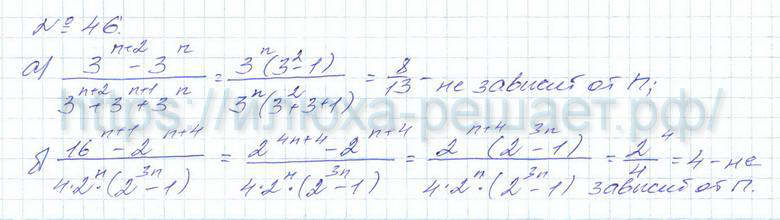 № 46.
а) (3^(n+2) - 3^n)/(3^(n+2) + 3^(n+1) + 3^n) = (3^n (3^2 - 1))/(3^n (3^2 + 3 + 1)) = 8/13 - не зависит от n;
https://илюха-решает.рф/
б) (16^(n+1) - 2^(n+4))/(4·2^n·(2^(3n) - 1)) = (2^(4n+4) - 2^(n+4))/(4·2^n·(2^(3n) - 1)) = (2^(n+4) (2^(3n) - 1))/(4·2^n·(2^(3n) - 1)) = 2^4/4 = 4 - не
зависит от n.